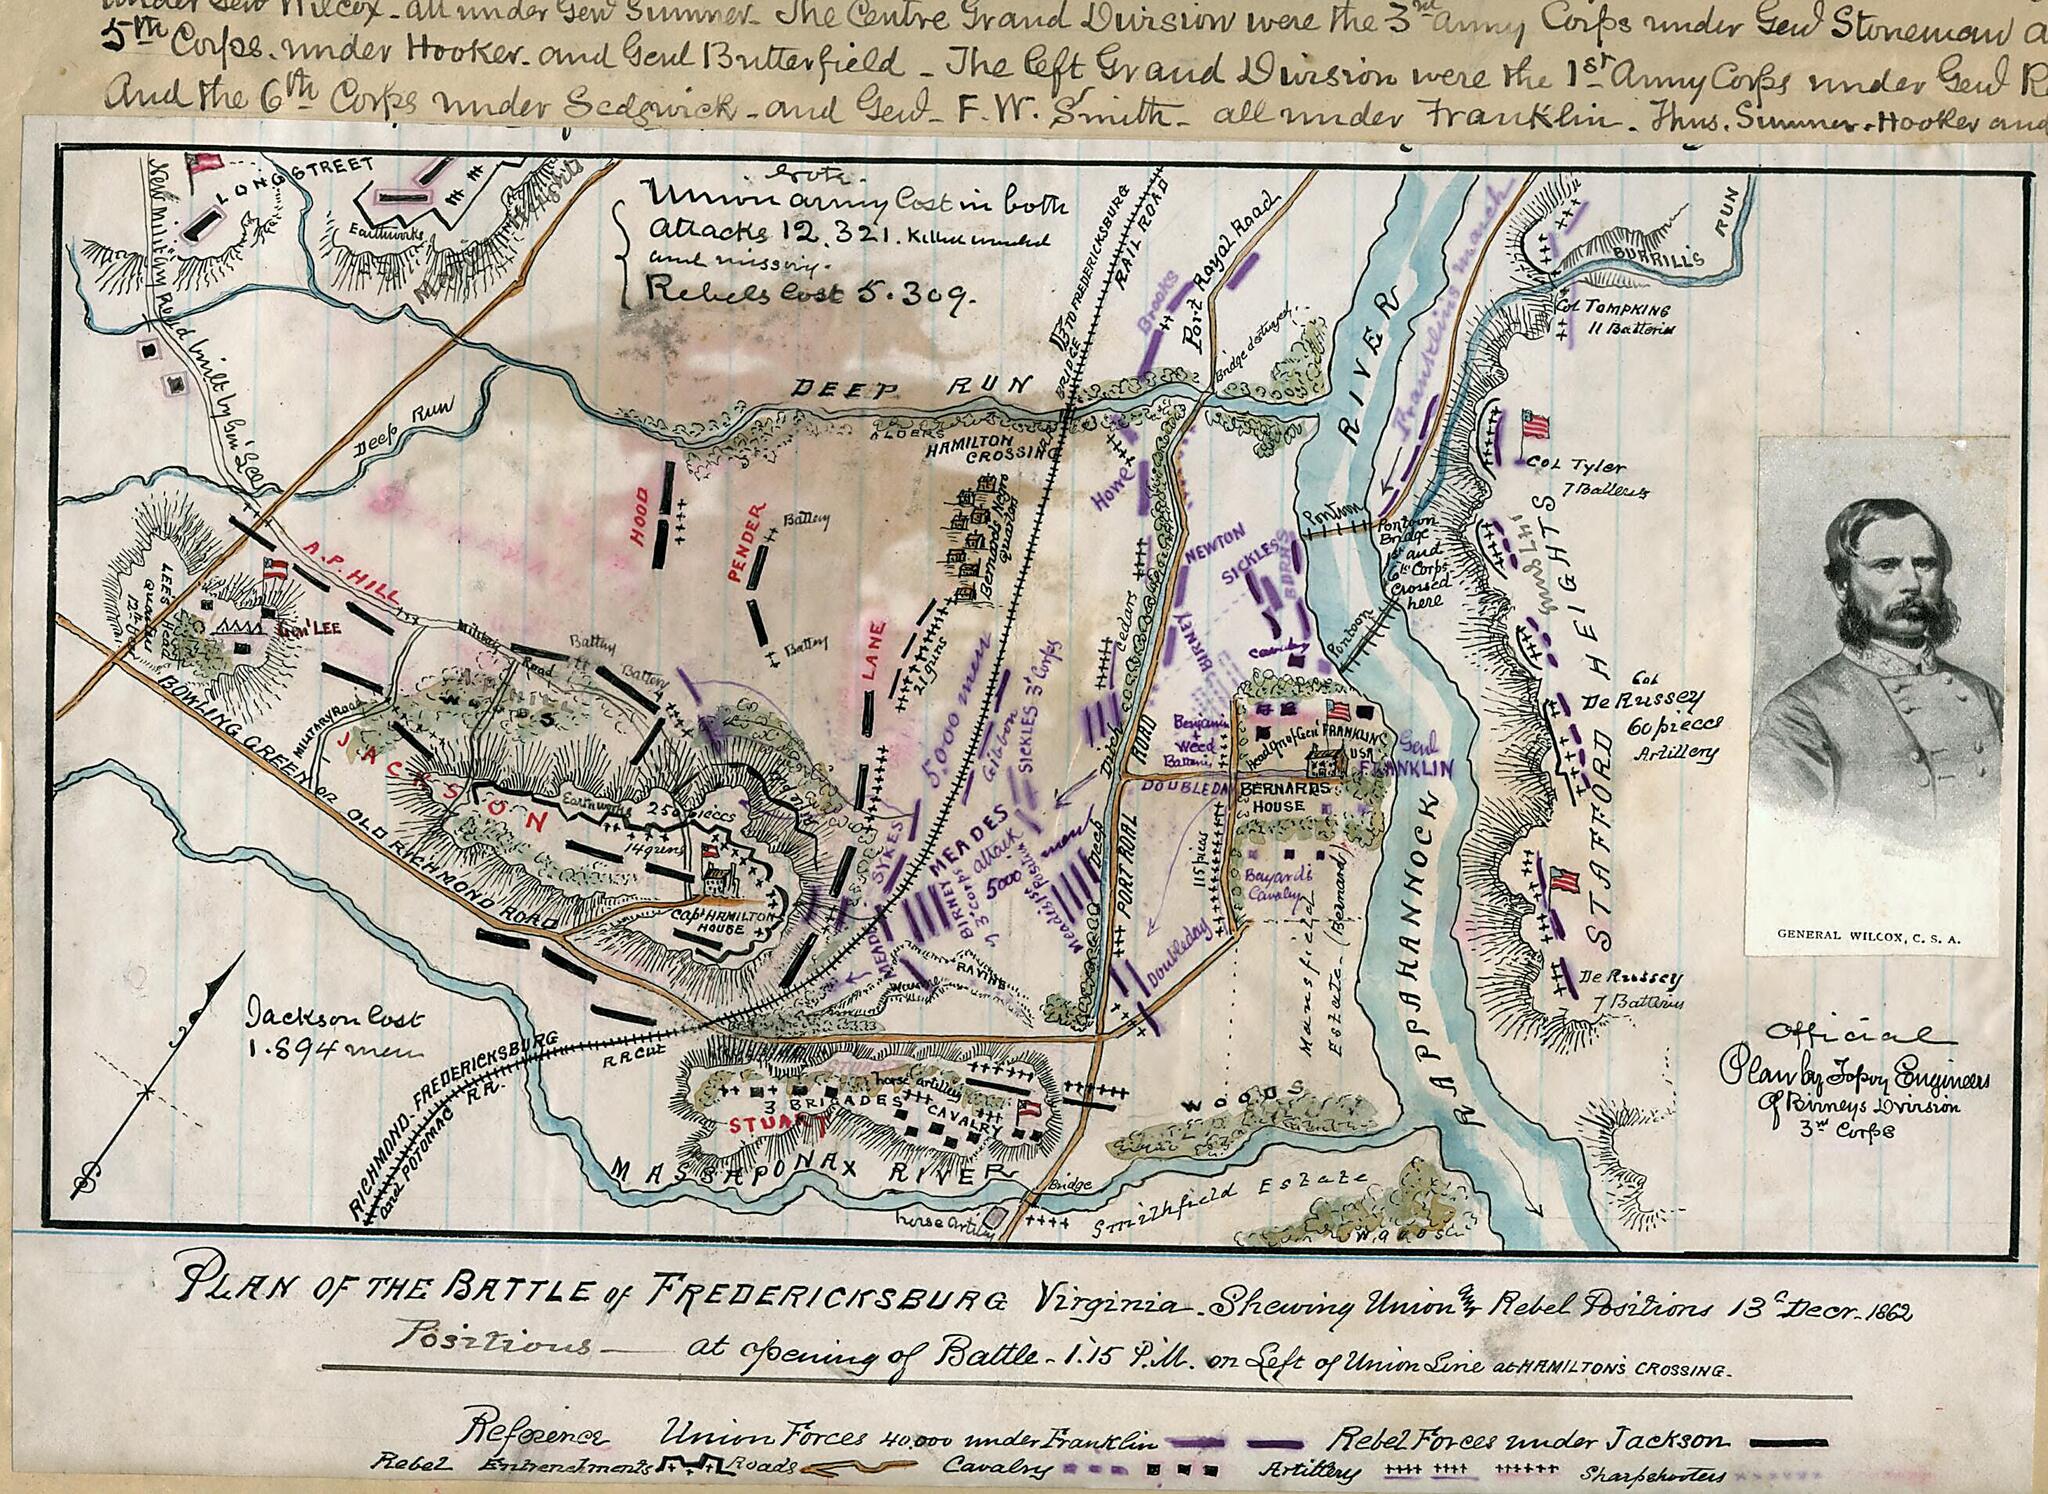 under Genl Wilcox - all under Genl Sumner - The Centre Grand Division were the 3rd Army Corps under Genl Stoneman
5th Corps. under Hooker. and Genl Butterfield - The left Grand Division were the 1st Army Corps under Genl
And the 6th Corps under Sedgwick - and Genl - F. W. Smith - all under Franklin. Thus. Sumner. Hooker and
LONGSTREET
Earthworks
Heights
New military Road built by Gen' Lee
Note.
Union army lost in both
attacks 12.321. Killed wounded
and missing.
Rebels lost 5.309.
TO FREDERICKSBURG
RAIL ROAD
BRIDGE
Brooks
Port Royal Road
Bridge destroyed
RIVER
Franklins march
BURRILL'S
RUN
Col TOMPKING
11 Batteries
DEEP RUN
ALDERS
Deep Run
HAMILTON
CROSSING
Howe
HOOD
PENDER
Battery
Battery
Bernards Negro
NEWTON
SICKLESS
BURNS
Pontoon
Pontoon
Bridge
1st and
6th Corps
Crossed
here
Pontoon
Col Tyler
7 Batteries
STAFFORD HEIGHTS
Col
De Russey
60 pieces
Artillery
De Russey
7 Batteries
LEES
Head
Quarters
A.P. HILL
Gen' LEE
Military
Road
Battery
Battery
LANE
21 guns
5000 men
Gibbon
SICKLES 3d Corps
Cedars
Ditch
ROAD
BIRNEY
BIRNEY
Cavalry
Benjamin
+
Weed
Batteries
Head Qrs of Gen' FRANKLIN
USA
Genl
FRANKLIN
DOUBLEDAY
BERNARDS
HOUSE
115 pieces
Bayards
Cavalry
Mansfield
Estate - (Bernard)
MILITARY Road
WOODS
JACKSON
Earthworks
250 pieces
14 guns
Rifle Pits
Capt HAMILTON
HOUSE
BOWLING GREEN or OLD RICHMOND ROAD
SYKES
MEADES
attack
5000 men
BIRNEY
3d corps
Meades 1st Position
Ditch
PORT ROIAL
Doubleday
MEADE
RAVINE
Jackson Lost
1.894 men
RICHMOND. FREDERICKSBURG
and POTOMAC R.R.
R.R Cut
horse artillery
3 BRIGADES CAVALRY
STUART
MASSAPONAX RIVER
Bridge
horse Artily
Smithfield Estate
WOODS
Woods
RAPPAHANNOCK
GENERAL WILCOX, C. S. A.
Official
Plan by Topog Engineers
Of Birneys Division
3rd Corps
PLAN OF THE BATTLE of FREDERICKSBURG Virginia. Shewing Union and Rebel Positions 13th Decr. 1862
Positions — at opening of Battle - 1.15 P.M. on Left of Union Line at HAMILTON'S CROSSING.
Reference Union Forces 40.000 under Franklin Rebel Forces under Jackson
Rebel Entrenchments Roads Cavalry Artillery Sharpshooters